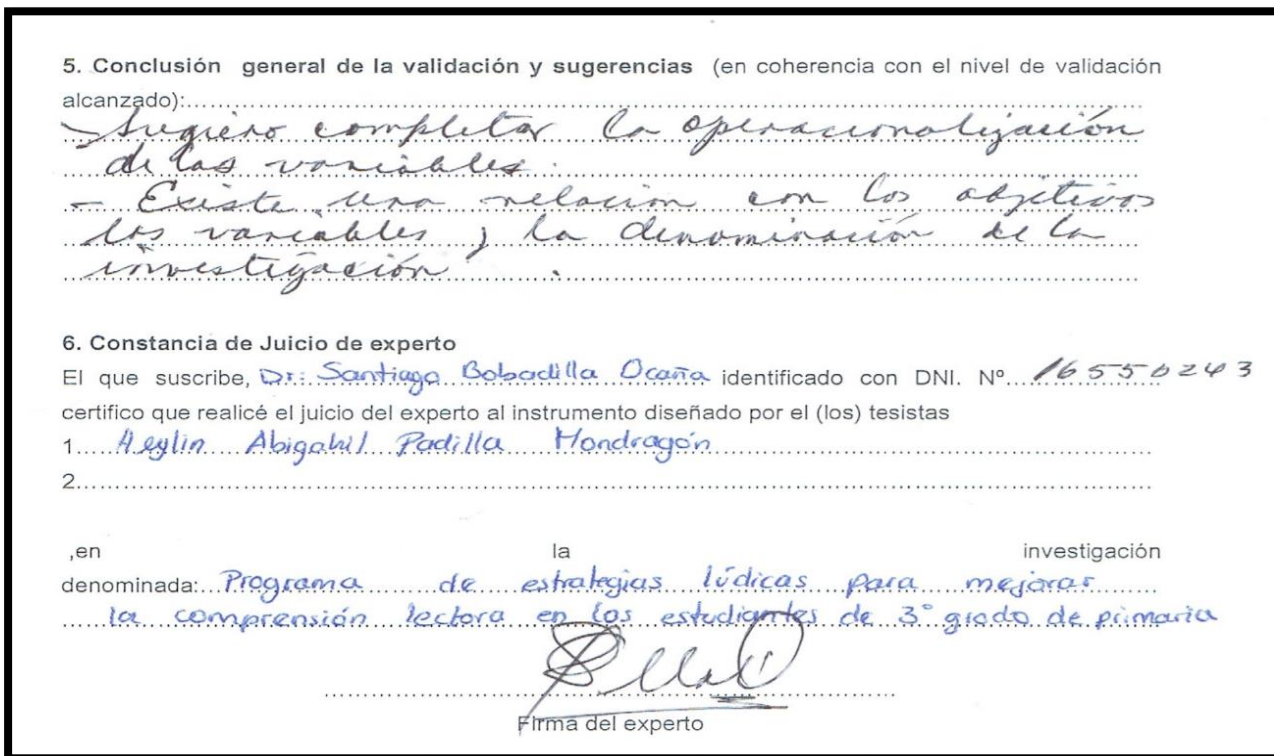 5. Conclusión general de la validación y sugerencias (en coherencia con el nivel de validación
alcanzado):
- Sugiero completar la operacionalización
de las variables.
- Existe una relación con los objetivos
las variables y la denominación de la
investigación.
6. Constancia de Juicio de experto
El que suscribe, Dr: Santiago Bobadilla Ocaña identificado con DNI. Nº 16550243
certifico que realicé el juicio del experto al instrumento diseñado por el (los) tesistas
1. Heylin Abigahil Padilla Mondragón
2.
,en la investigación
denominada: Programa de estrategias lúdicas para mejorar
la comprensión lectora en los estudiantes de 3° grado de primaria
Firma del experto